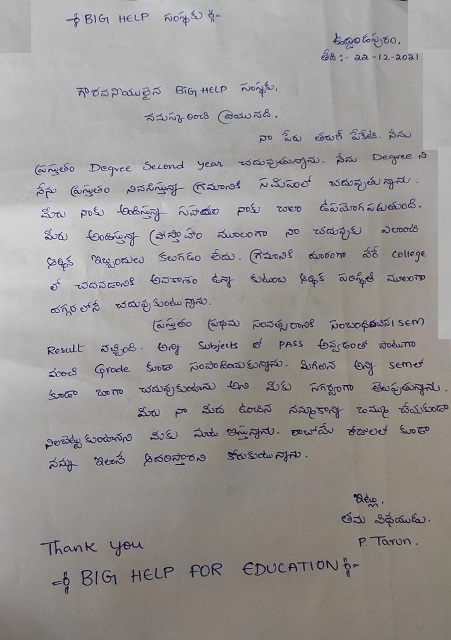 BIG HELP సంస్థకు
ఉద్దండపురం,
తేది :- 22-12-2021
గౌరవనీయులైన BIG HELP సంస్థకు,
నమస్కరించి వ్రాయునది.
నా పేరు తరుణ్ పేకేటి. నేను
ప్రస్తుతం Degree Second year చదువుతున్నాను. నేను Degree ని
నేను ప్రస్తుతం నివసిస్తున్నా గ్రామానికి సమీపంలో చదువుతున్నాను.
మీరు నాకు అందిస్తున్నా సహాయం నాకు చాలా ఉపయోగపడుతుంది.
మీరు అందిస్తున్నా ప్రోత్సాహం మూలంగా నా చదువుకు ఎలాంటి
ఆర్థిక ఇబ్బందులు కలుగడం లేదు. గ్రామానికి దూరంగా వేరే college
లో చదవడానికి అవకాశం ఉన్నా కుటుంబ ఆర్థిక పరిస్థితి మూలంగా
దగ్గరలోనే చదువుకుంటున్నాను.
ప్రస్తుతం ప్రథమ సంవత్సరానికి సంబంధించిన I SEM
Result వచ్చింది. అన్ని Subjects లో PASS అవ్వడంతో పాటుగా
మంచి Grade కూడా సంపాదియకున్నాను. మిగిలిన అన్ని semలో
కూడా బాగా చదువుకుంటాను అని మీకు సగర్వంగా తెలుపుతున్నాను.
మీరు నా మీద ఉంచిన నమ్మకాన్ని వమ్ము చేయకుండా
నిలబెట్టుకుంటానని మీకు మాట ఇస్తున్నాను. రాబోయే రోజులలో కూడా
నన్ను ఇలానే ఆదరిస్తారని కోరుకుంటున్నాను.
ఇట్లు,
తమ విధేయుడు.
P. Tarun.
Thank you
BIG HELP FOR EDUCATION